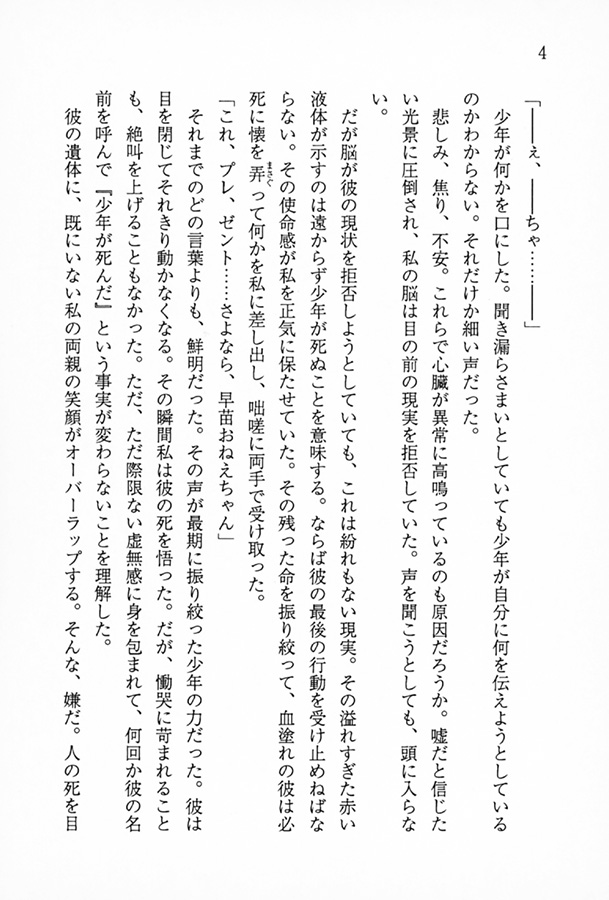 4
「――ぇ、――ちゃ……――」
　少年が何かを口にした。聞き漏らさまいとしていても少年が自分に何を伝えようとしている
のかわからない。それだけか細い声だった。
　悲しみ、焦り、不安。これらで心臓が異常に高鳴っているのも原因だろうか。嘘だと信じた
い光景に圧倒され、私の脳は目の前の現実を拒否していた。声を聞こうとしても、頭に入らな
い。
　だが脳が彼の現状を拒否しようとしていても、これは紛れもない現実。その溢れすぎた赤い
液体が示すのは遠からず少年が死ぬことを意味する。ならば彼の最後の行動を受け止めねばな
らない。その使命感が私を正気に保たせていた。その残った命を振り絞って、血塗れの彼は必
死に懐を弄まさぐって何かを私に差し出し、咄嗟に両手で受け取った。
「これ、プレ、ゼント……さよなら、早苗おねえちゃん」
　それまでのどの言葉よりも、鮮明だった。その声が最期に振り絞った少年の力だった。彼は
目を閉じてそれきり動かなくなる。その瞬間私は彼の死を悟った。だが、慟哭に苛まれること
も、絶叫を上げることもなかった。ただ、ただ際限ない虚無感に身を包まれて、何回か彼の名
前を呼んで『少年が死んだ』という事実が変わらないことを理解した。
　彼の遺体に、既にいない私の両親の笑顔がオーバーラップする。そんな、嫌だ。人の死を目